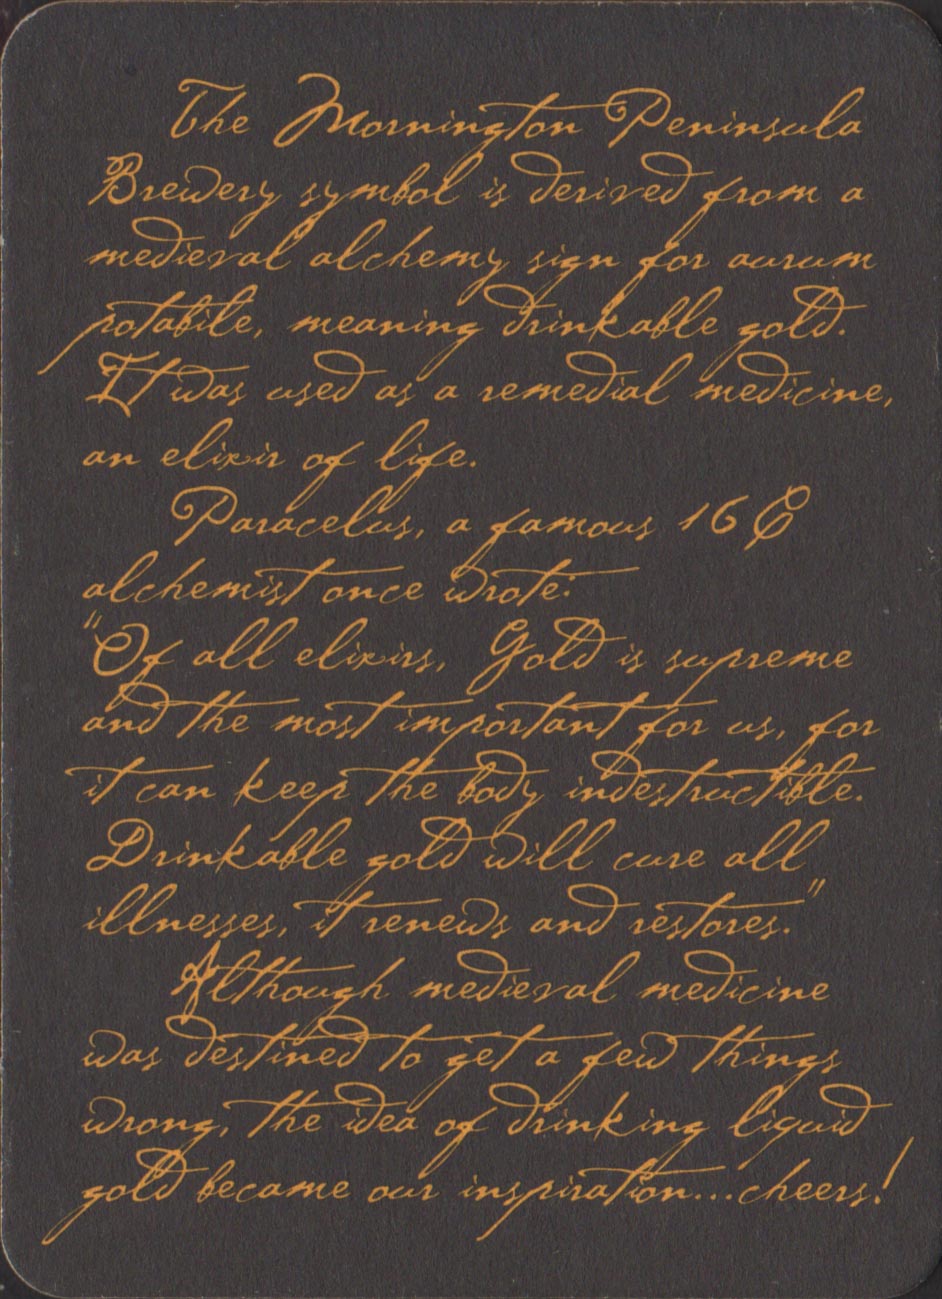 The Mornington Peninsula
Brewery symbol is derived from a
medieval alchemy sign for aurum
potabile, meaning drinkable gold.
It was used as a remedial medicine,
an elixir of life.
Paracelus, a famous 16 C
alchemist once wrote:
"Of all elixirs, Gold is supreme
and the most important for us, for
it can keep the body indestructible.
Drinkable gold will cure all
illnesses, it renews and restores."
Although medieval medicine
was destined to get a few things
wrong, the idea of drinking liquid
gold became our inspiration...cheers!